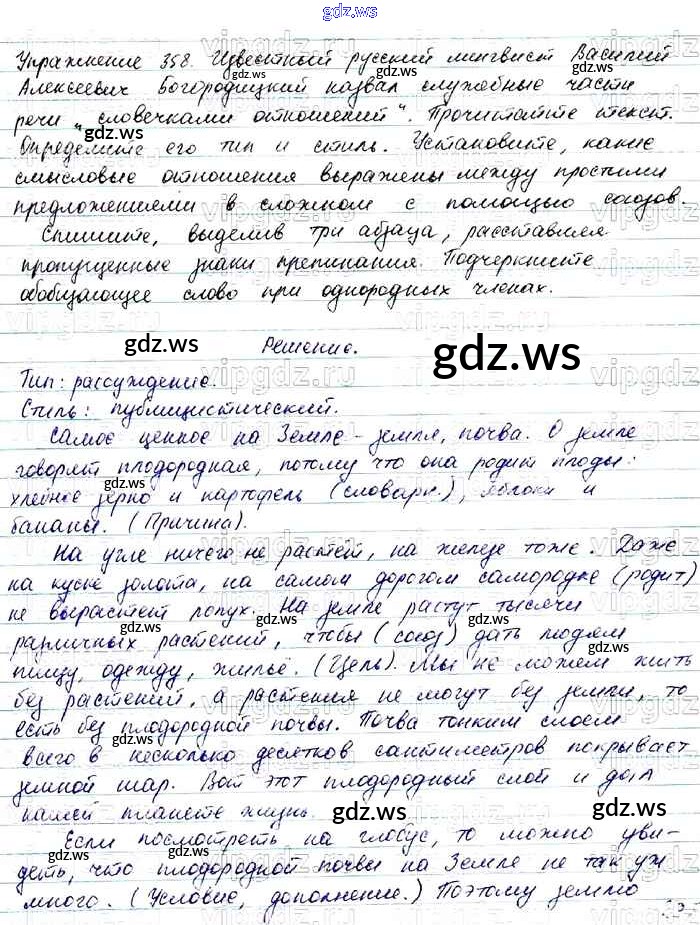 gdz.ws
Упражнение 358. Известный русский лингвист Василий
Алексеевич Богородицкий назвал служебные части
речи „словечками отношений“. Прочитайте текст.
Определите его тип и стиль. Установите, какие
смысловые отношения выражены между простыми
предложениями в сложном с помощью союзов.
Спишите, выделив три абзаца, расставляя
пропущенные знаки препинания. Подчеркните
обобщающее слово при однородных членах.
gdz.ws Решение. gdz.ws
Тип: рассуждение.
Стиль: публицистический.
Самое ценное на Земле - земля, почва. О земле
говорят плодородная, потому что она родит плоды:
хлебное зерно и картофель (словарн.), яблоки и
бананы. (Причина).
На угле ничего не растёт, на железе тоже. Даже
на куске золота, на самом дорогом самородке (родит)
не вырастет лопух. На земле растут тысячи
различных растений, чтобы (союз) дать людям
пищу, одежду, жильё. (Цель). Мы не можем жить
без растений, а растения не могут без земли, то
есть без плодородной почвы. Почва тонким слоем
всего в несколько десятков сантиметров покрывает
земной шар. Вот этот плодородный слой и дал
нашей планете жизнь.
Если посмотреть на глобус, то можно уви-
деть, что плодородной почвы на Земле не так уж
много. (Условие, дополнение.) Поэтому землю